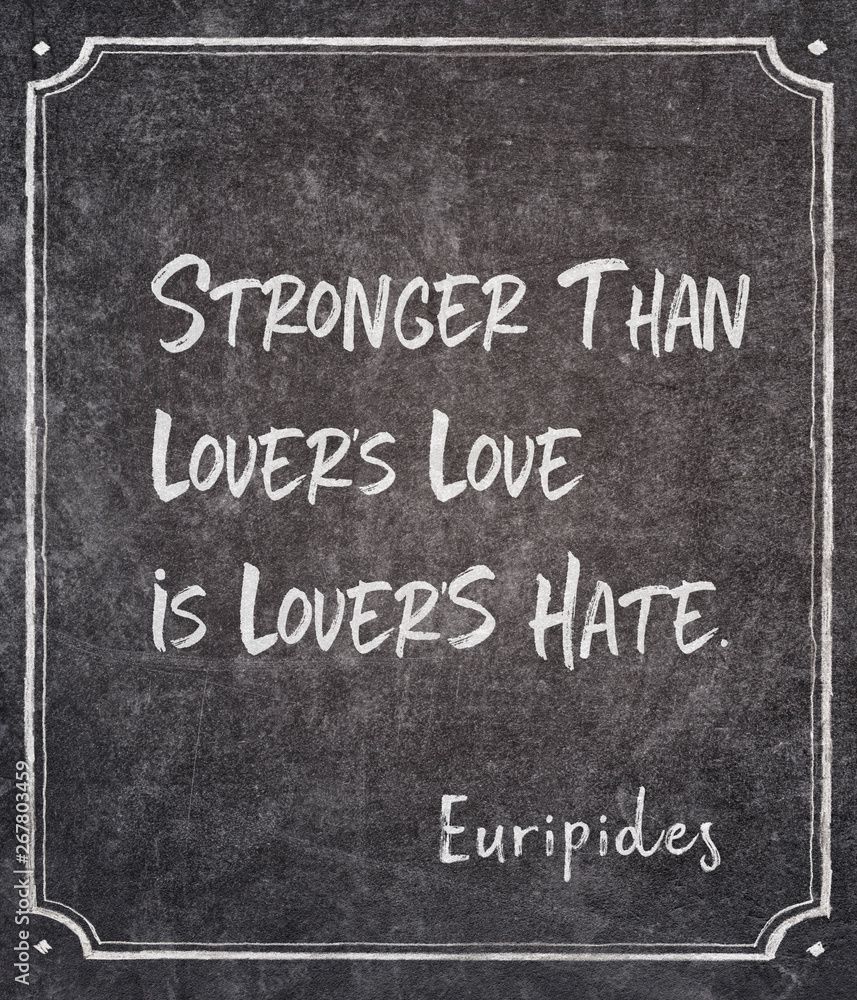 Stronger Than
Lover's Love
is Lover's Hate.
Euripides
Adobe Stock | #267803459